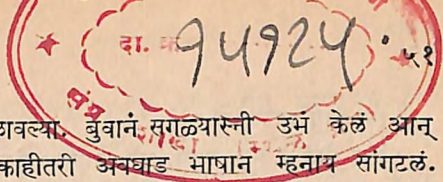 दा. १५१२५
५१
ठावल्या. बुवानं सगळ्यास्नी उभं केलं आन्
काहीतरी अवघाड भाषान म्हनाय सांगटलं.